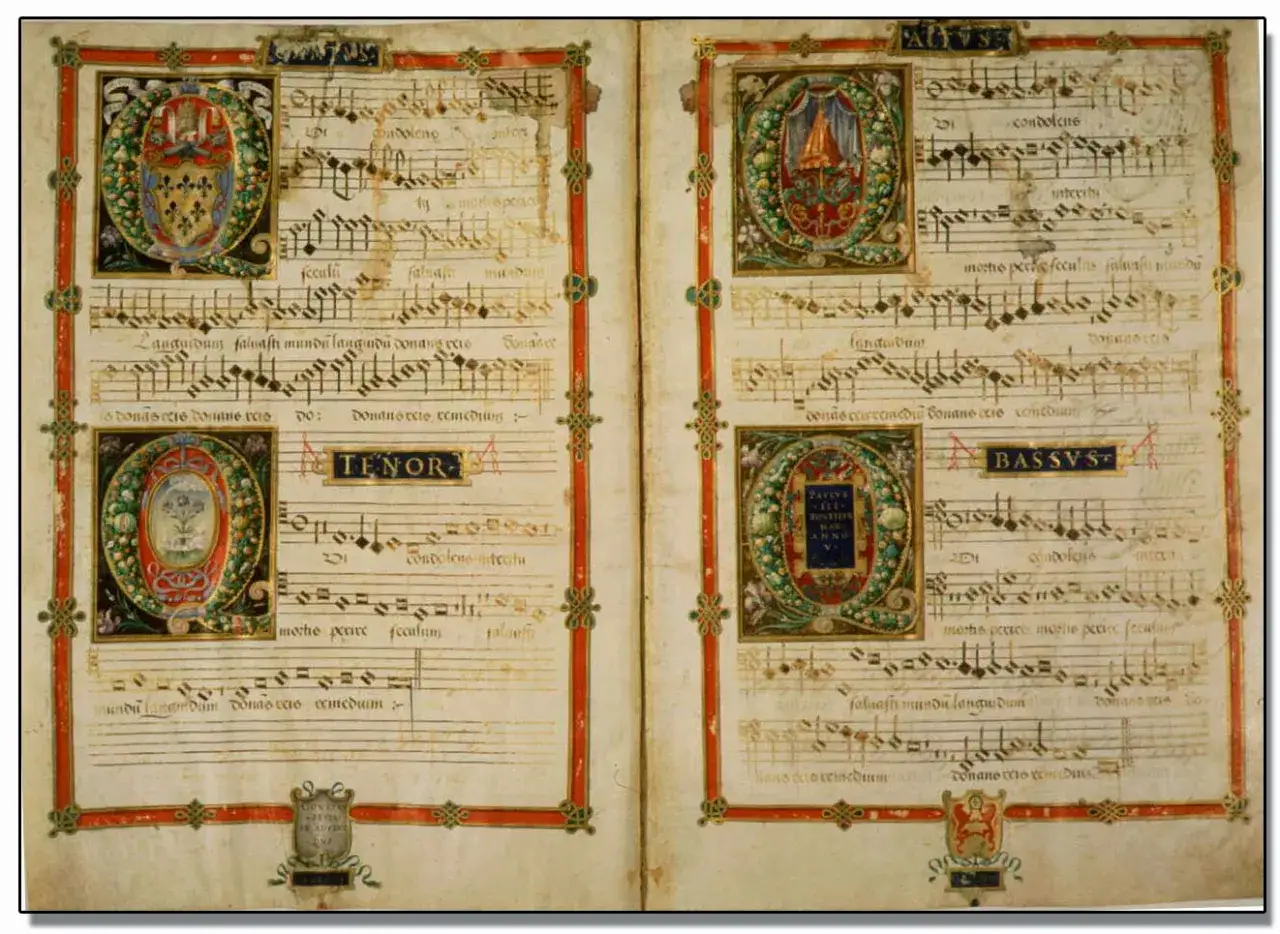 Qui condolens interi
tu mortis perire
seculū saluasti mundum
Languidum saluasti mundū languidū donans reis donās re
is donās reis donans reis do: donans reis remedium :~
TENOR
Qui condolens interitu
mortis perire seculum saluasti
mundū languidum donās reis remedium :~
ALTVS
Qui condolens
interitu
mortis perire seculū saluasti mundū
languidum donans reis
donās reis remediū donans reis remedium
BASSVS
PAVLVS
III
PONTIFEX
MAX
ANNO
V
Qui condolens interitu
mortis perire mortis perire seculum
saluasti mundū languidum donans reis do
nans reis remedium donans reis remediū